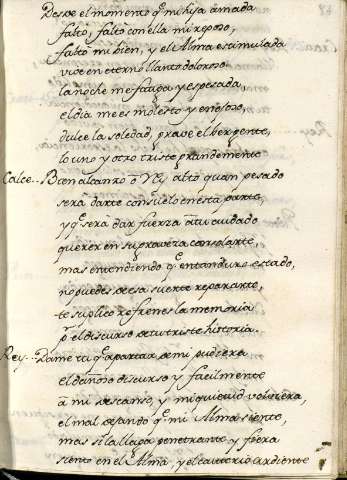 Desde el momento q̃ mi hija amada
falto, falto con ella mi reposo,
falto mi bien, y el Alma estimulada
vive en eterno llanto doloroso
la noche me fatiga y es pesada,
el dia me es molesto y enojoso,
dulce la soledad, grave el
lo uno y otro triste
Calce.. Bien alcanzo ò Rey, alto quan pesado
será darte consuelo en esta parte,
y q̃ será dar fuerza à tu cuidado
querer en su graveza consolarte,
mas entendiendo q̃ en tan duro estado,
no puedes de esa suerte repararte,
te suplico refrenes la memoria
pr el discurso de tu triste historia.
Rey.. Dame tu q̃ apartar de mi pudiera
el dañoso discurso y facilmente
à mi descanso, y mi quietud volviera,
el mal dejando q̃ mi Alma siente,
mas si la llaga penetrante y fiera
siento en el Alma, y el cauterio ardiente